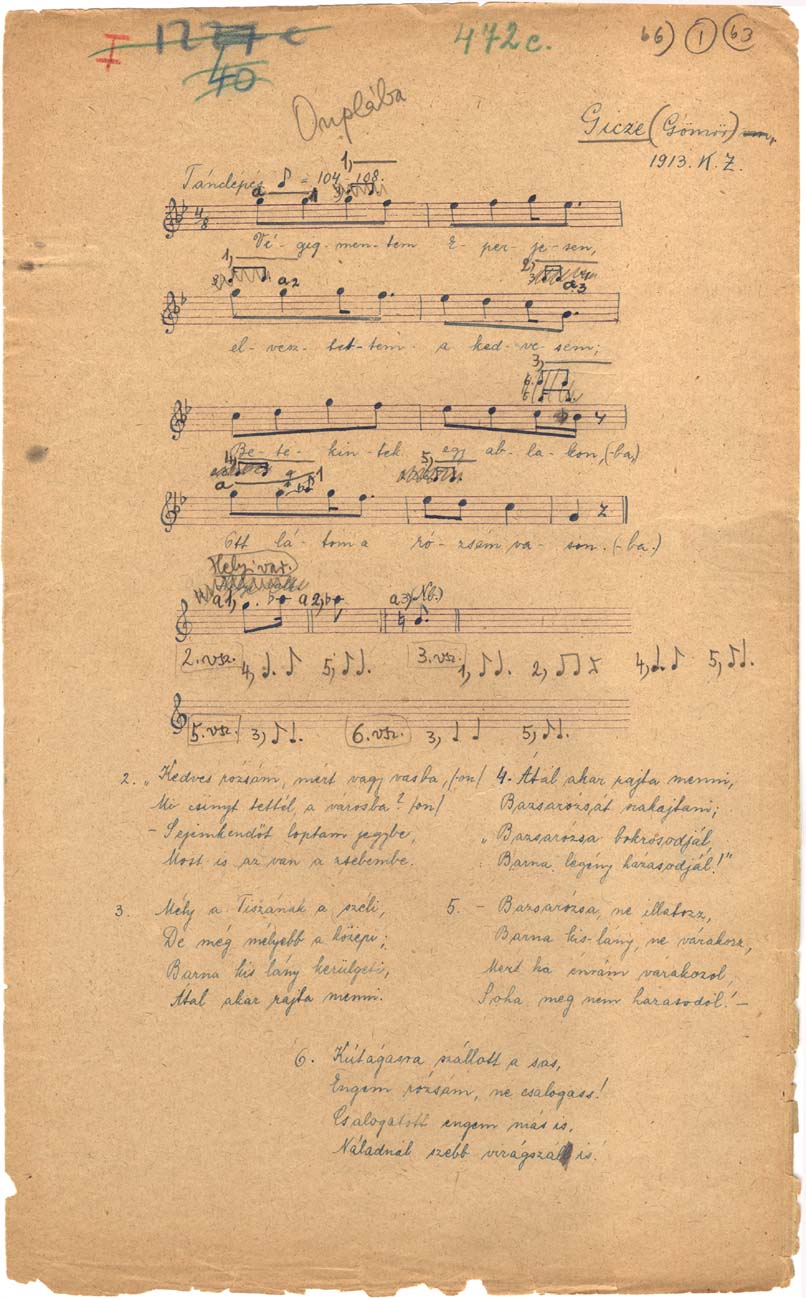 I 1227 c 472c. 66) 1 63
40
Duplába
Gicze (Gömör)
1913. K. Z.
1,
Tánclépés ♪ = 104-108.
a 1
4/8
Vé- gig- men- tem E- per- je- sen,
1, 2,
a2 a3
el- vesz- tet- tem a ked- ve- sem;
3,
Be- te- kin- tek egy ab- la- kon, (-ba,)
4, 5,
a 1
Ott lá- tom a ró- zsém va- son. (-ba.)
Hely: vár.
a1, a2, a3, (Nb.)
2. vsz. 4, 5, 3. vsz. 1, 2, 4, 5,
5. vsz. 3, 6. vsz. 3, 5,
2. „Kedves rózsám, mért vagy vasba, (-on)
Mi csinyt tettél, a városba? (on)
– Sejemkendőt loptam jegybe,
Most is az van a zsebembe.
3. Mély a Tiszának a széli,
De még mélyebb a közepi;
Barna kis lány kerülgeti,
Átal akar rajta menni.
4. Átal akar rajta menni,
Bazsarózsát szakajtani;
„Bazsarózsa bokrosodjál,
Barna legény házasodjál!"
5. – Bazsarózsa, ne illatozz,
Barna kis-lány, ne várakozz,
Mert ha énrám várakozol,
Soha meg nem házasodol! –
6. Kútágasra szállott a sas,
Engem rózsám, ne csalogass!
Csalogatott engem más is,
Náladnál szebb virágszál is!